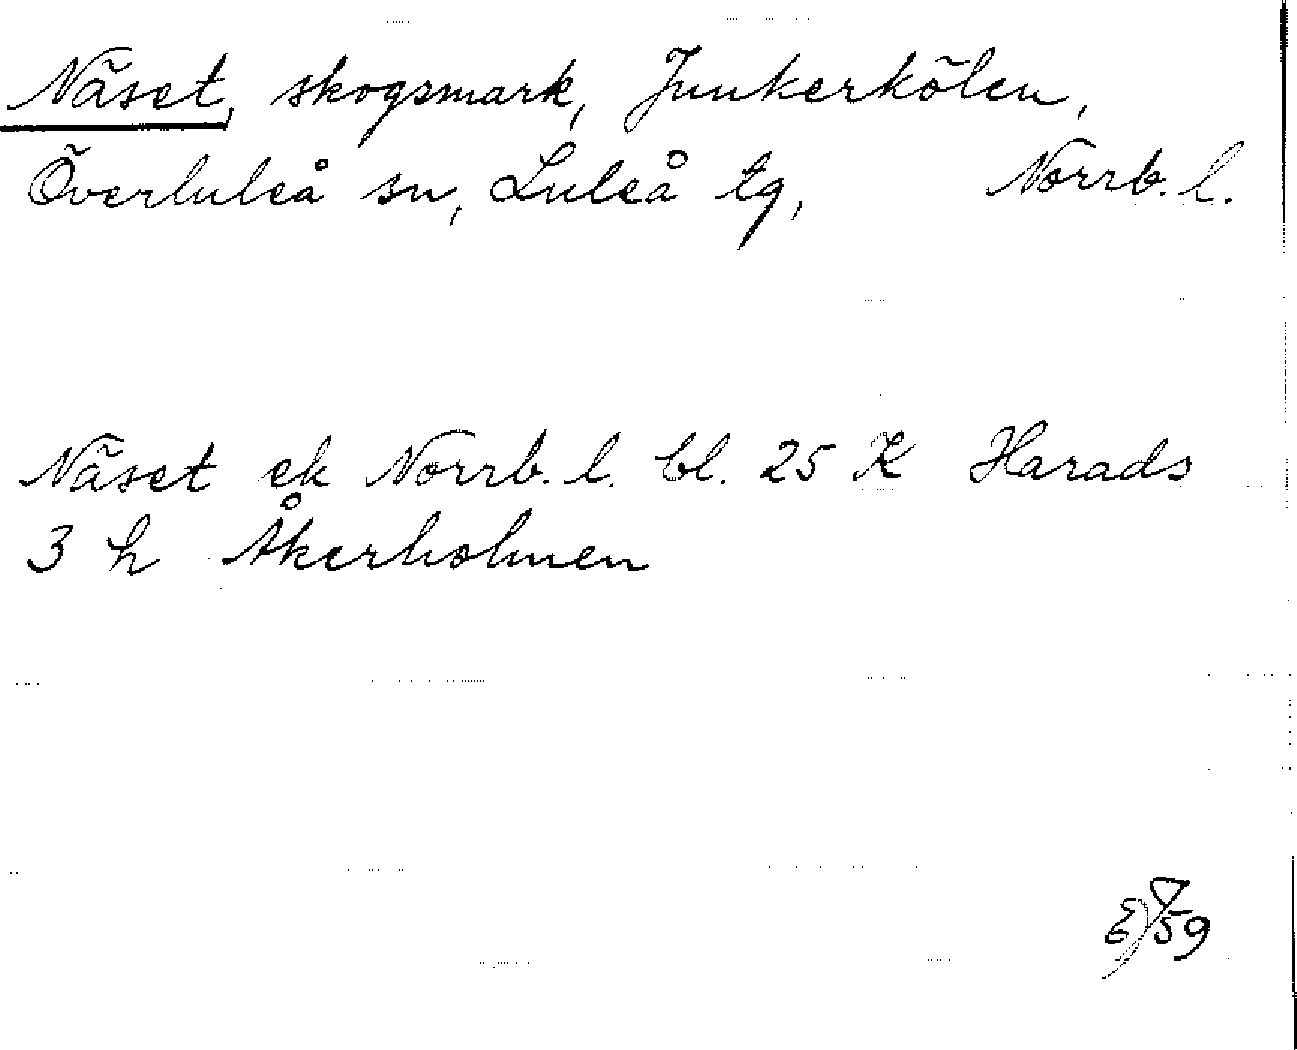 Näset, skogsmark, Junkerkölen,
Överluleå sn, Luleå tg, Norrb. l.
Näset ek Norrb. l. bl. 25 K Harads
3 h Åkerholmen
59